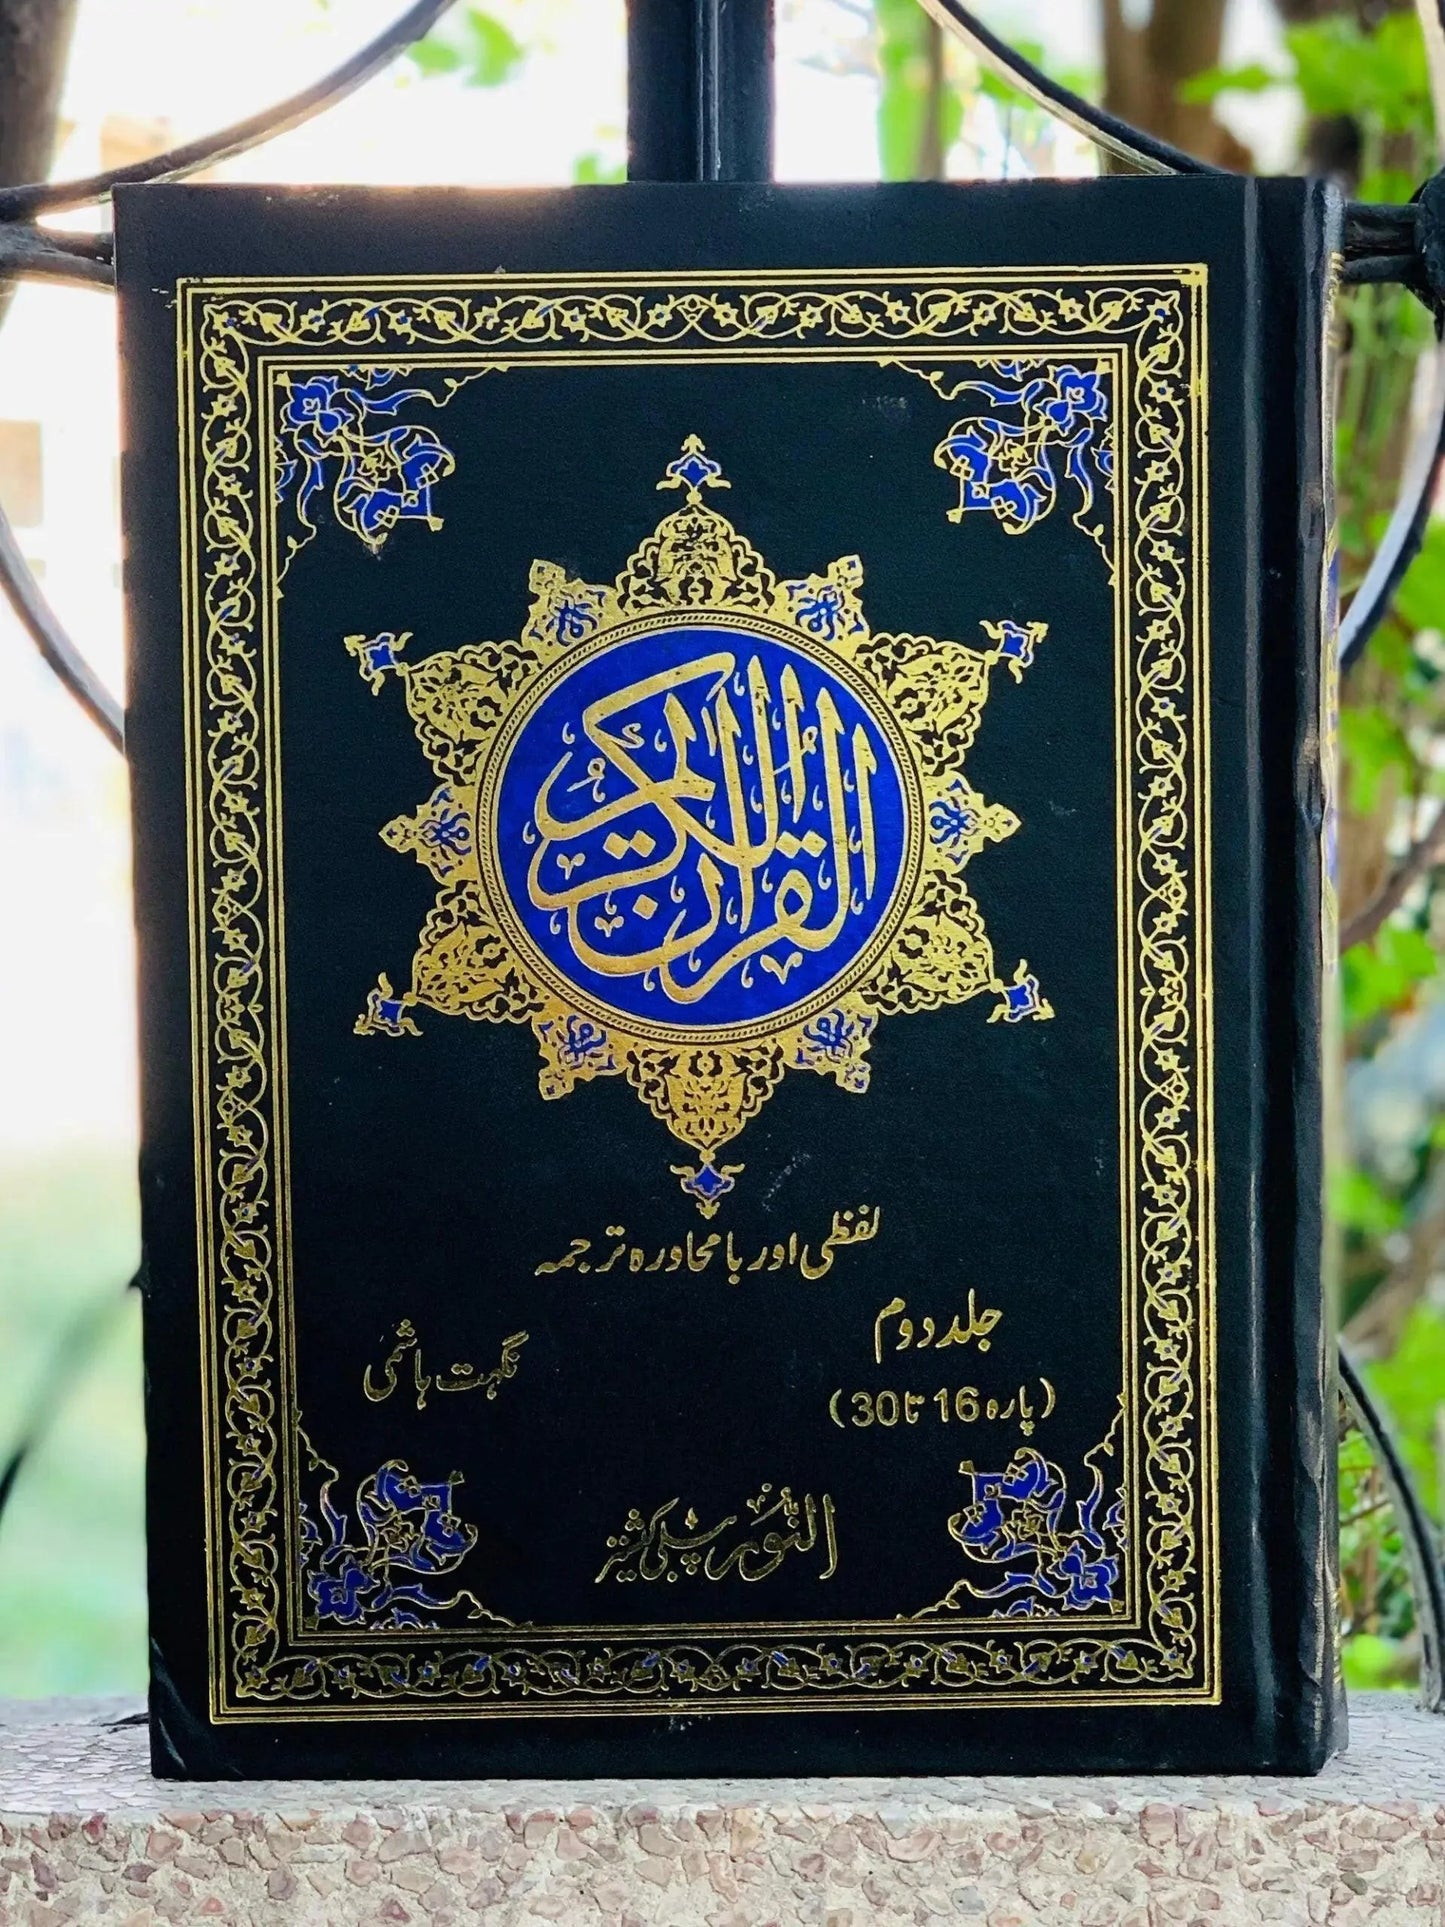 القرآن الكريم
لفظی اور بامحاورہ ترجمہ
جلد دوم
(پارہ 16 تا 30)
نگہت ہاشمی
النور پبلی کیشنز